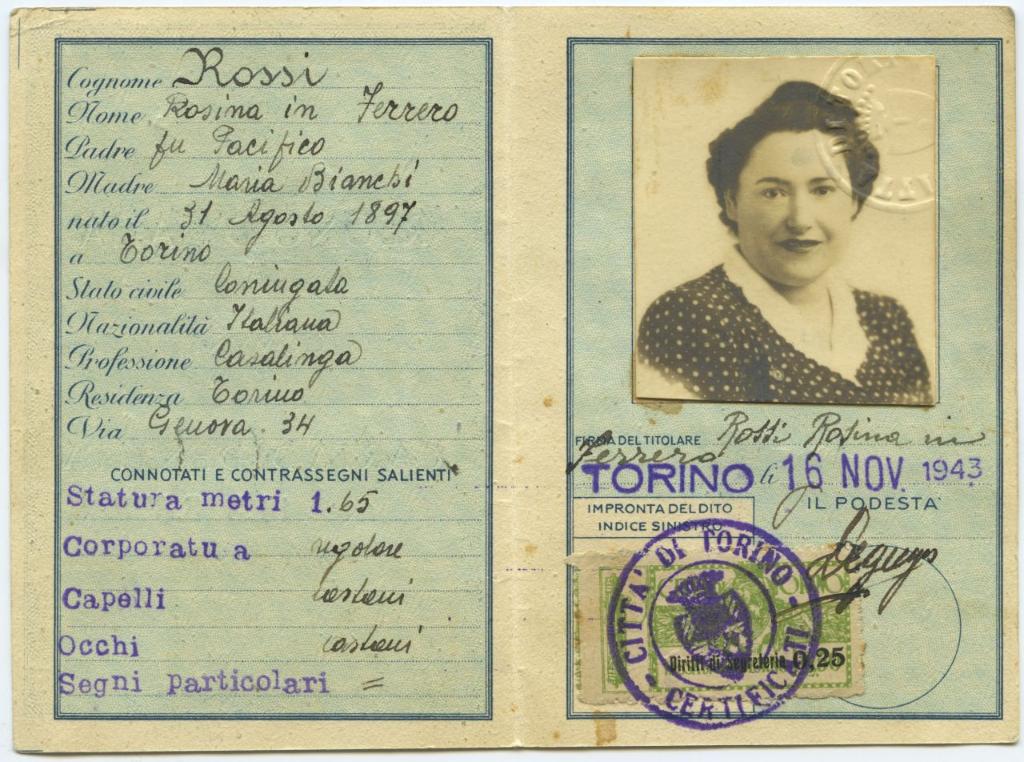 Cognome Rossi
Nome Rosina in Ferrero
Padre fu Pacifico
Madre Maria Bianchi
nato il 31 Agosto 1897
a Torino
Stato civile Coniugata
Nazionalità Italiana
Professione Casalinga
Residenza Torino
Via Genova 34
CONNOTATI E CONTRASSEGNI SALIENTI
Statura metri 1.65
Corporatura regolare
Capelli castani
Occhi castani
Segni particolari =
FIRMA DEL TITOLARE Rossi Rosina in
Ferrero
TORINO li 16 NOV. 1943
IL PODESTA'
IMPRONTA DEL DITO
INDICE SINISTRO
CITTA' DI TORINO
Diritti di Segreteria 0,25
CERTIFICATI